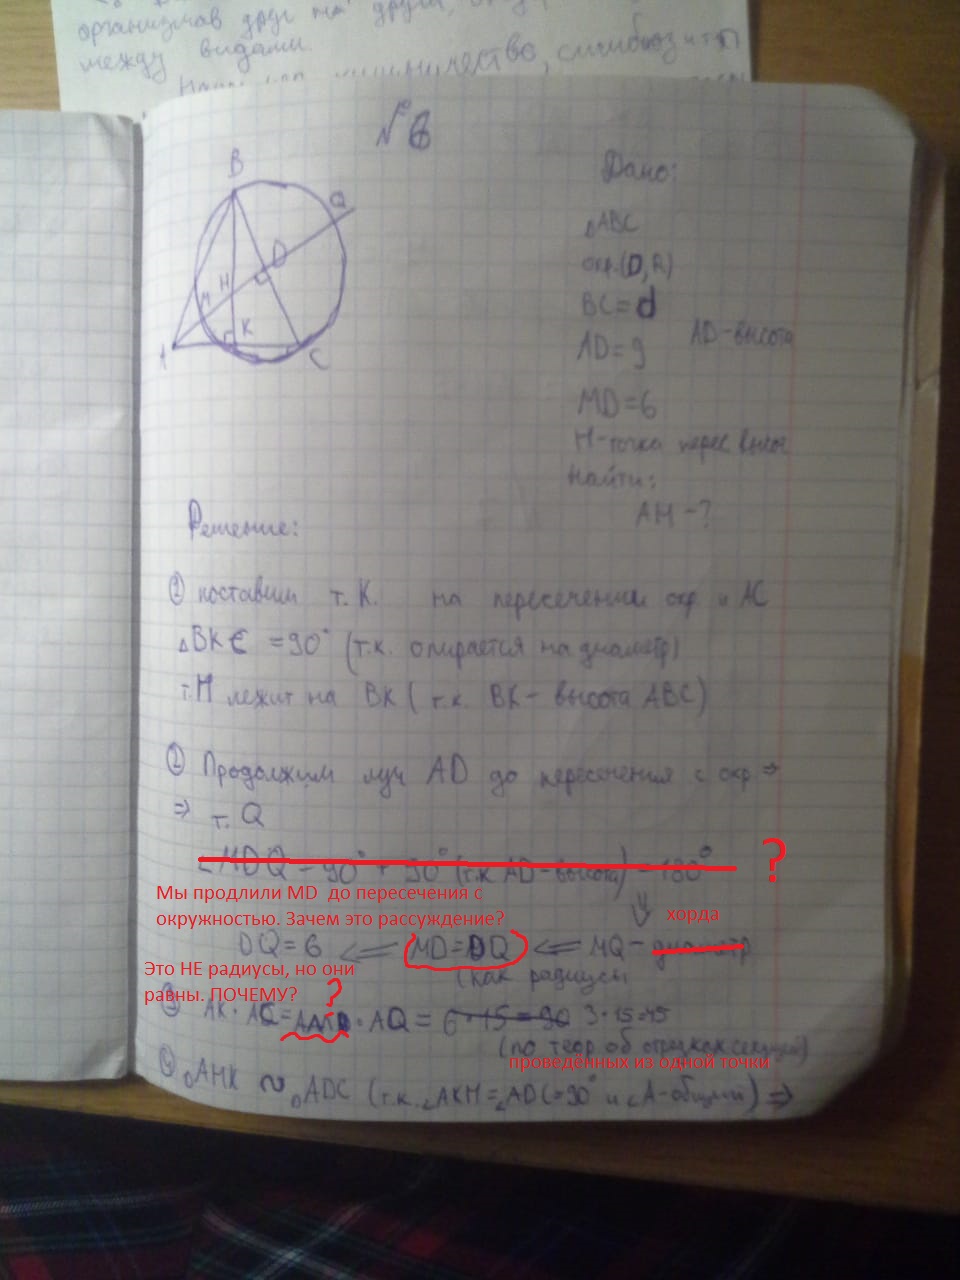 организмов друг на друга,
между видами.
№6
B
Q
D
H
M
K
A
C
Дано:
△ABC
окр.(D, R)
BC=d
AD=9 AD-высота
MD=6
H-точка перес высот
Найти:
AH-?
Решение:
① поставим т. K. на пересечении окр и AC
△BKC =90° (т.к. опирается на диаметр)
т.H лежит на BK (т.к. BK- высота ABC)
② Продолжим луч AD до пересечения с окр ⇒
⇒ т. Q
∠MDQ = 90° + 90° (т.к AD-высота) = 180° ?
Мы продлили MD до пересечения с
окружностью. Зачем это рассуждение?
хорда
DQ=6 ⇐ MD=DQ ⇐ MQ- диаметр
(как радиусы
Это НЕ радиусы, но они
равны. ПОЧЕМУ? ?
③ AK · AC= · AQ = 6·15=90 3·15=45
(по теор об отрезках секущей)
проведённых из одной точки
④ △AHK ∾ △ADC (т.к. ∠AKH=∠ADC=90° и ∠A-общий) ⇒